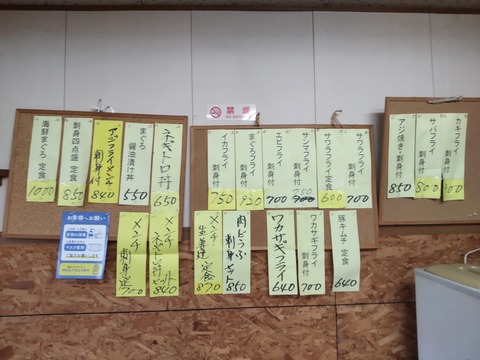 海鮮まぐろ 定食
1000
刺身四点盛 定食
850
アジフライメンチ
刺身付
840
まぐろ
醤油漬け丼
550
ネギトロ丼
650
禁煙
NO SMOKING
イカフライ
刺身付
750
まぐろフライ
刺身付
920
エビフライ
刺身付
700
サンマフライ
刺身付
750
サワラフライ
刺身付 定食
600
サワラフライ
刺身付
700
アジ焼き・刺身付
850
サバフライ
刺身付
800
カキフライ
刺身付
お客様へお願い
メンチ
刺身定
700
メンチ
840
メンチ
生姜焼 定食
870
肉どうふ
刺身セット
850
ワカサギフライ
640
ワカサギフライ
刺身付
700
豚キムチ 定食
640